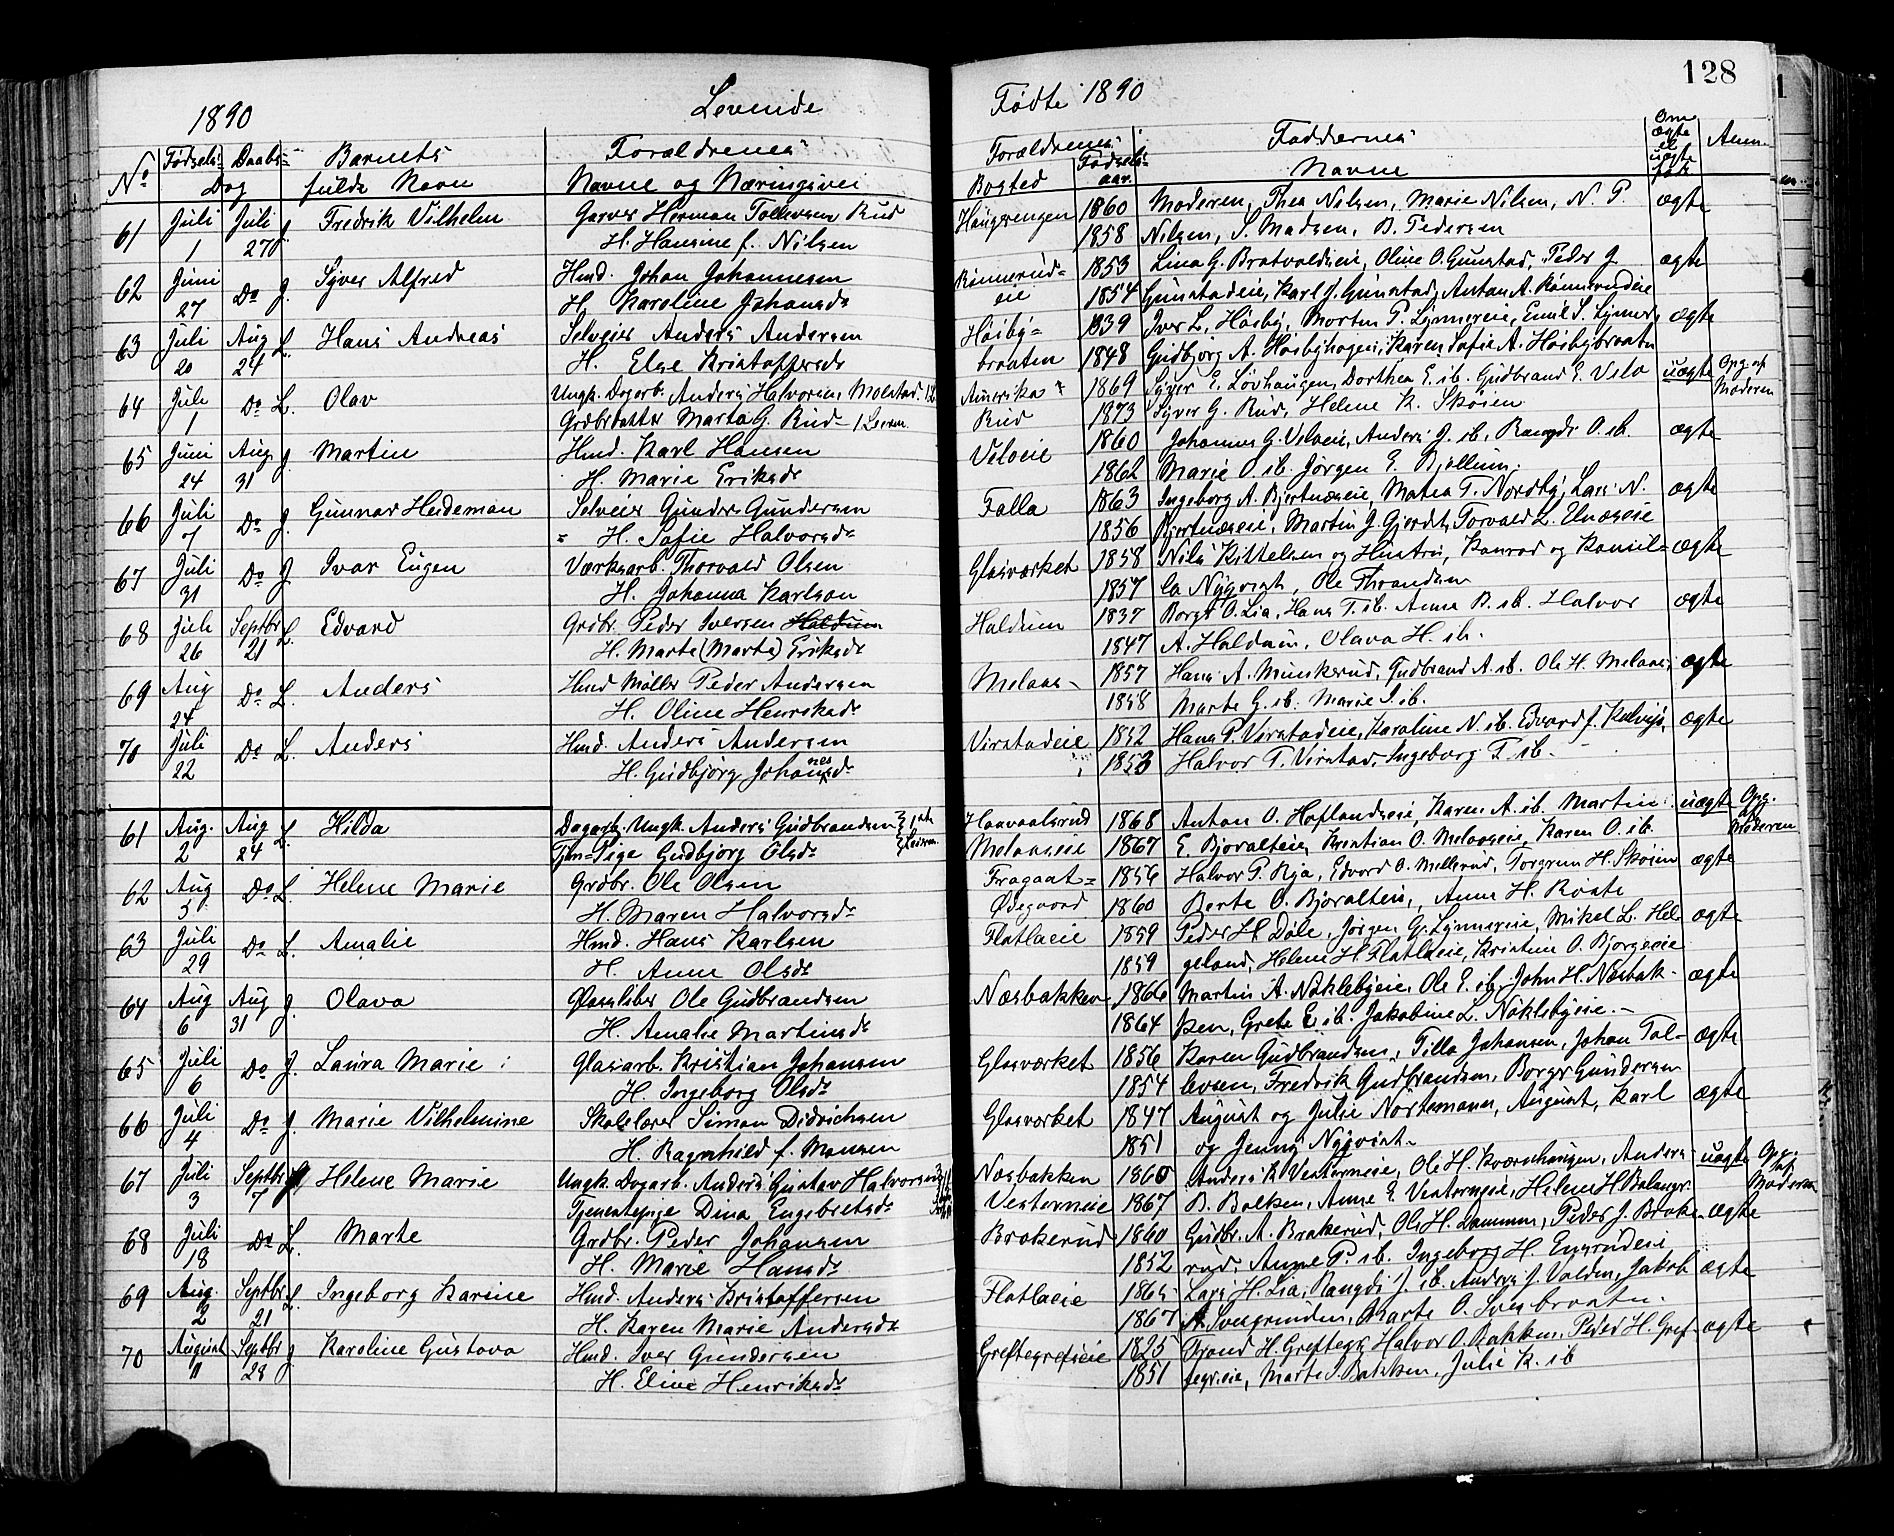 128
1890 Levende
Fødte 1890
No Fødsels- Daabs- Barnets Forældrenes
Dag fulde Navn Navne og Næringsvei
Forældrenes Faddernes Om ægte el uægte fød Anm.
Bosted Fødsels-aar. Navne
61 Juli Juli J. Fredrik Vilhelm Garver Herman Tollevsen Rud Haugsrengen 1860 Moderen, Thea Nilsen, Marie Nilsen, N. P. ægte
1 27 H. Hansine f. Nilsen 1858 Nilsen, S. Madsen, B. Pedersen
62 Juni Do J. Syver Alfred Hmd. Johan Johannesen Rønnerud- 1853 Lina G. Bratvoldseie, Oline O. Gunstad, Peder J. ægte
27 H. Karoline Johansdr eie 1854 Gunstadeie, Karl J. Gunstad, Anton A. Rønnerudeie
63 Juli Aug L. Hans Andreas Selveier Anders Andersen Høsby- 1839 Iver L. Høsby, Morten P. Lynnereie, Emil S. Lynner, ægte
20 24 H. Else Kristoffersdr braaten 1848 Gudbjørg A. Høsbyhagen, Karen Sofie A. Høsbybraatn
64 Juli Do L. Olav Ungk. Dagarb. Anders Halvorsen Molstad. Amerika 1869 Syver E. Løvhaugen, Dorthea E. ib. Gudbrand E. Velo uægte Opg. af
1 Grdbrdatter Marta G. Rud Rud 1873 Syver G. Rud, Helene K. Skøien Moderen
65 Juni Aug J. Martin Hmd. Karl Hansen Veloeie 1860 Johannes G. Veloeie, Anders J. ib, Rangdi O. ib. ægte
24 31 H. Marie Eriksdr 1862 Marie O. ib. Jørgen E. Bjellum.
66 Juli Do J. Gunnar Heideman Selveier Gunder Gundersen Falla 1863 Ingeborg A. Bjertnæseie, Matea T. Nordby, Lars N. ægte
7 H. Sofie Halvorsdr 1856 Bjertnæseie, Martin J. Gjerdt, Torvald L. Elnæseie
67 Juli Do J. Ivar Eugen Værksarb. Thorvald Olsen Glasværket 1858 Nils Kittelsen og Hustru, Konrad og Kamil- ægte
31 H. Johanna Karlson 1857 la Nyqvist, Ole Thrandsen
68 Juli Septbr L. Edvard Grdbr. Peder Iversen Haldum Haldum 1837 Borger O. Lia, Hans T. ib. Anne B. ib. Halvor ægte
26 21 H. Marte (Marta) Eriksdr 1847 A. Haldum, Olava H. ib.
69 Aug Do L. Anders Hmd Møller Peder Andersen Meloas 1857 Hans A. Munkerud, Gudbrand A. ib. Ole H. Meloas, ægte
24 H. Oline Henriksdr 1858 Marte G. ib. Marie I. ib.
70 Juli Do L. Anders Hmd. Anders Andersen Virstadeie 1852 Hans P. Virstadeie, Karoline N. ib. Edvard J. Kulvejs, ægte
22 H. Gudbjørg Johannesdr 1853 Halvor T. Virstad, Ingeborg T. ib.
61 Aug. Aug L. Hilda Dagarb. Ungk. Anders Gudbrandsen Haavaalsrud 1868 Anton O. Høflandseie, Karen A. ib. Martin uægte Opg. af
2 24 Tjen. Pige Gudbjørg Olsdr Meloaseie 1867 E. Bjoralteie, Kristian O. Meloaseie, Karen O. ib. Moderen
62 Aug Do L. Helene Marie Grdbr. Ole Olsen Fragaat- 1856 Halvor P. Rja, Edvard O. Mellerud, Torgrim H. Skøien ægte
5 H. Maren Halvorsdr Ødegaard 1860 Berte O. Bjoralteie, Anne H. Roate
63 Juli Do L. Amalie Hmd. Hans Karlsen Flatlaeie 1859 Peder H. Døle, Jørgen G. Lynnereie, Mikel L. Hel- ægte
29 H. Anne Olsdr 1859 geland, Helene H. Flatlaeie, Kristine O. Bjorgeeie
64 Aug Aug J. Olava Glassliber Ole Gudbrandsen Næsbakken 1866 Martin A. Nøklebyeie, Ole E. ib. John H. Næsbak- ægte
6 31 H. Amalie Martinsdr 1864 ken, Grete E. ib. Jakobine L. Nøklebyeie.
65 Juli Do J. Laura Marie Glasarb. Kristian Johansen Glasværket 1856 Karen Gudbrandsen, Tilla Johansen, Johan Tol- ægte
6 H. Ingeborg Olsdr 1854 levsen, Fredrik Gudbrandsen, Borger Gundersen
66 Juli Do J. Marie Vilhelmine Skolelærer Simon Didrichsen Glasværket 1847 August og Julie Nortemann, August, Karl ægte
4 H. Ragnhild f. Monsen 1851 og Jenny Nyqvist
67 Juli Septbr J. Helene Marie Ungk. Dagarb. Anders Gustav Halvorsen Næsbakken 1865 Anders K. Vesterneie, Ole H. Kværnhaugen, Anders uægte Opg. af
3 7 Tjenestepige Dina Engebretsdr Vesterneie 1867 B. Bakken, Anne E. Vesterneeie, Helene H. Balanger Moderen
68 Juli Do L. Marte Grdbr. Peder Johansen Brakerud 1860 Gudbr. A. Brakerud, Ole H. Dammen, Peder J. Brake- ægte
18 H. Marie Hansdr 1852 rud. Anne P. ib. Ingeborg H. Engrudeie
69 Aug. Septbr L. Ingeborg Karine Hmd. Anders Kristoffersen Flatlaeie 1865 Lars H. Lia, Rangdi J. ib. Anders J. Volden, Jakob ægte
2 21 H. Karen Marie Andersdr 1867 A. Sveegrinden, Marte O. Sveebraaten.
70 August Septbr J Karoline Gustava Hmd. Iver Gundersen Greftegrefseie 1825 Trond H. Greftegref, Halvor O. Bakken, Peder H. Gref- ægte
11 28 H. Eline Henriksdr 1851 tegreie, Marte S. Bakken, Julie K. ib